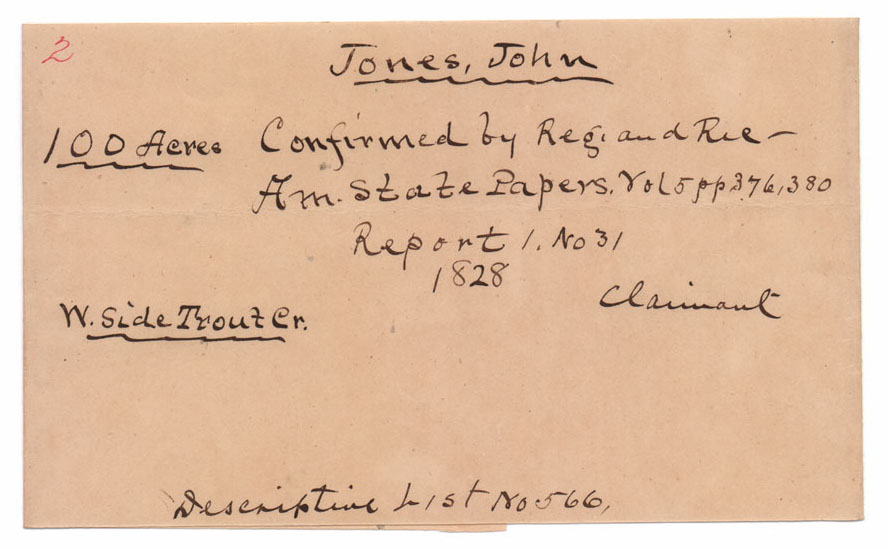 2
Jones, John
100 Acres Confirmed by Reg. and Rec -
Am. State Papers. Vol 5 pp 376, 380
Report 1. No 31
1828
Claimant
W. Side Trout Cr.
Descriptive List No 566,